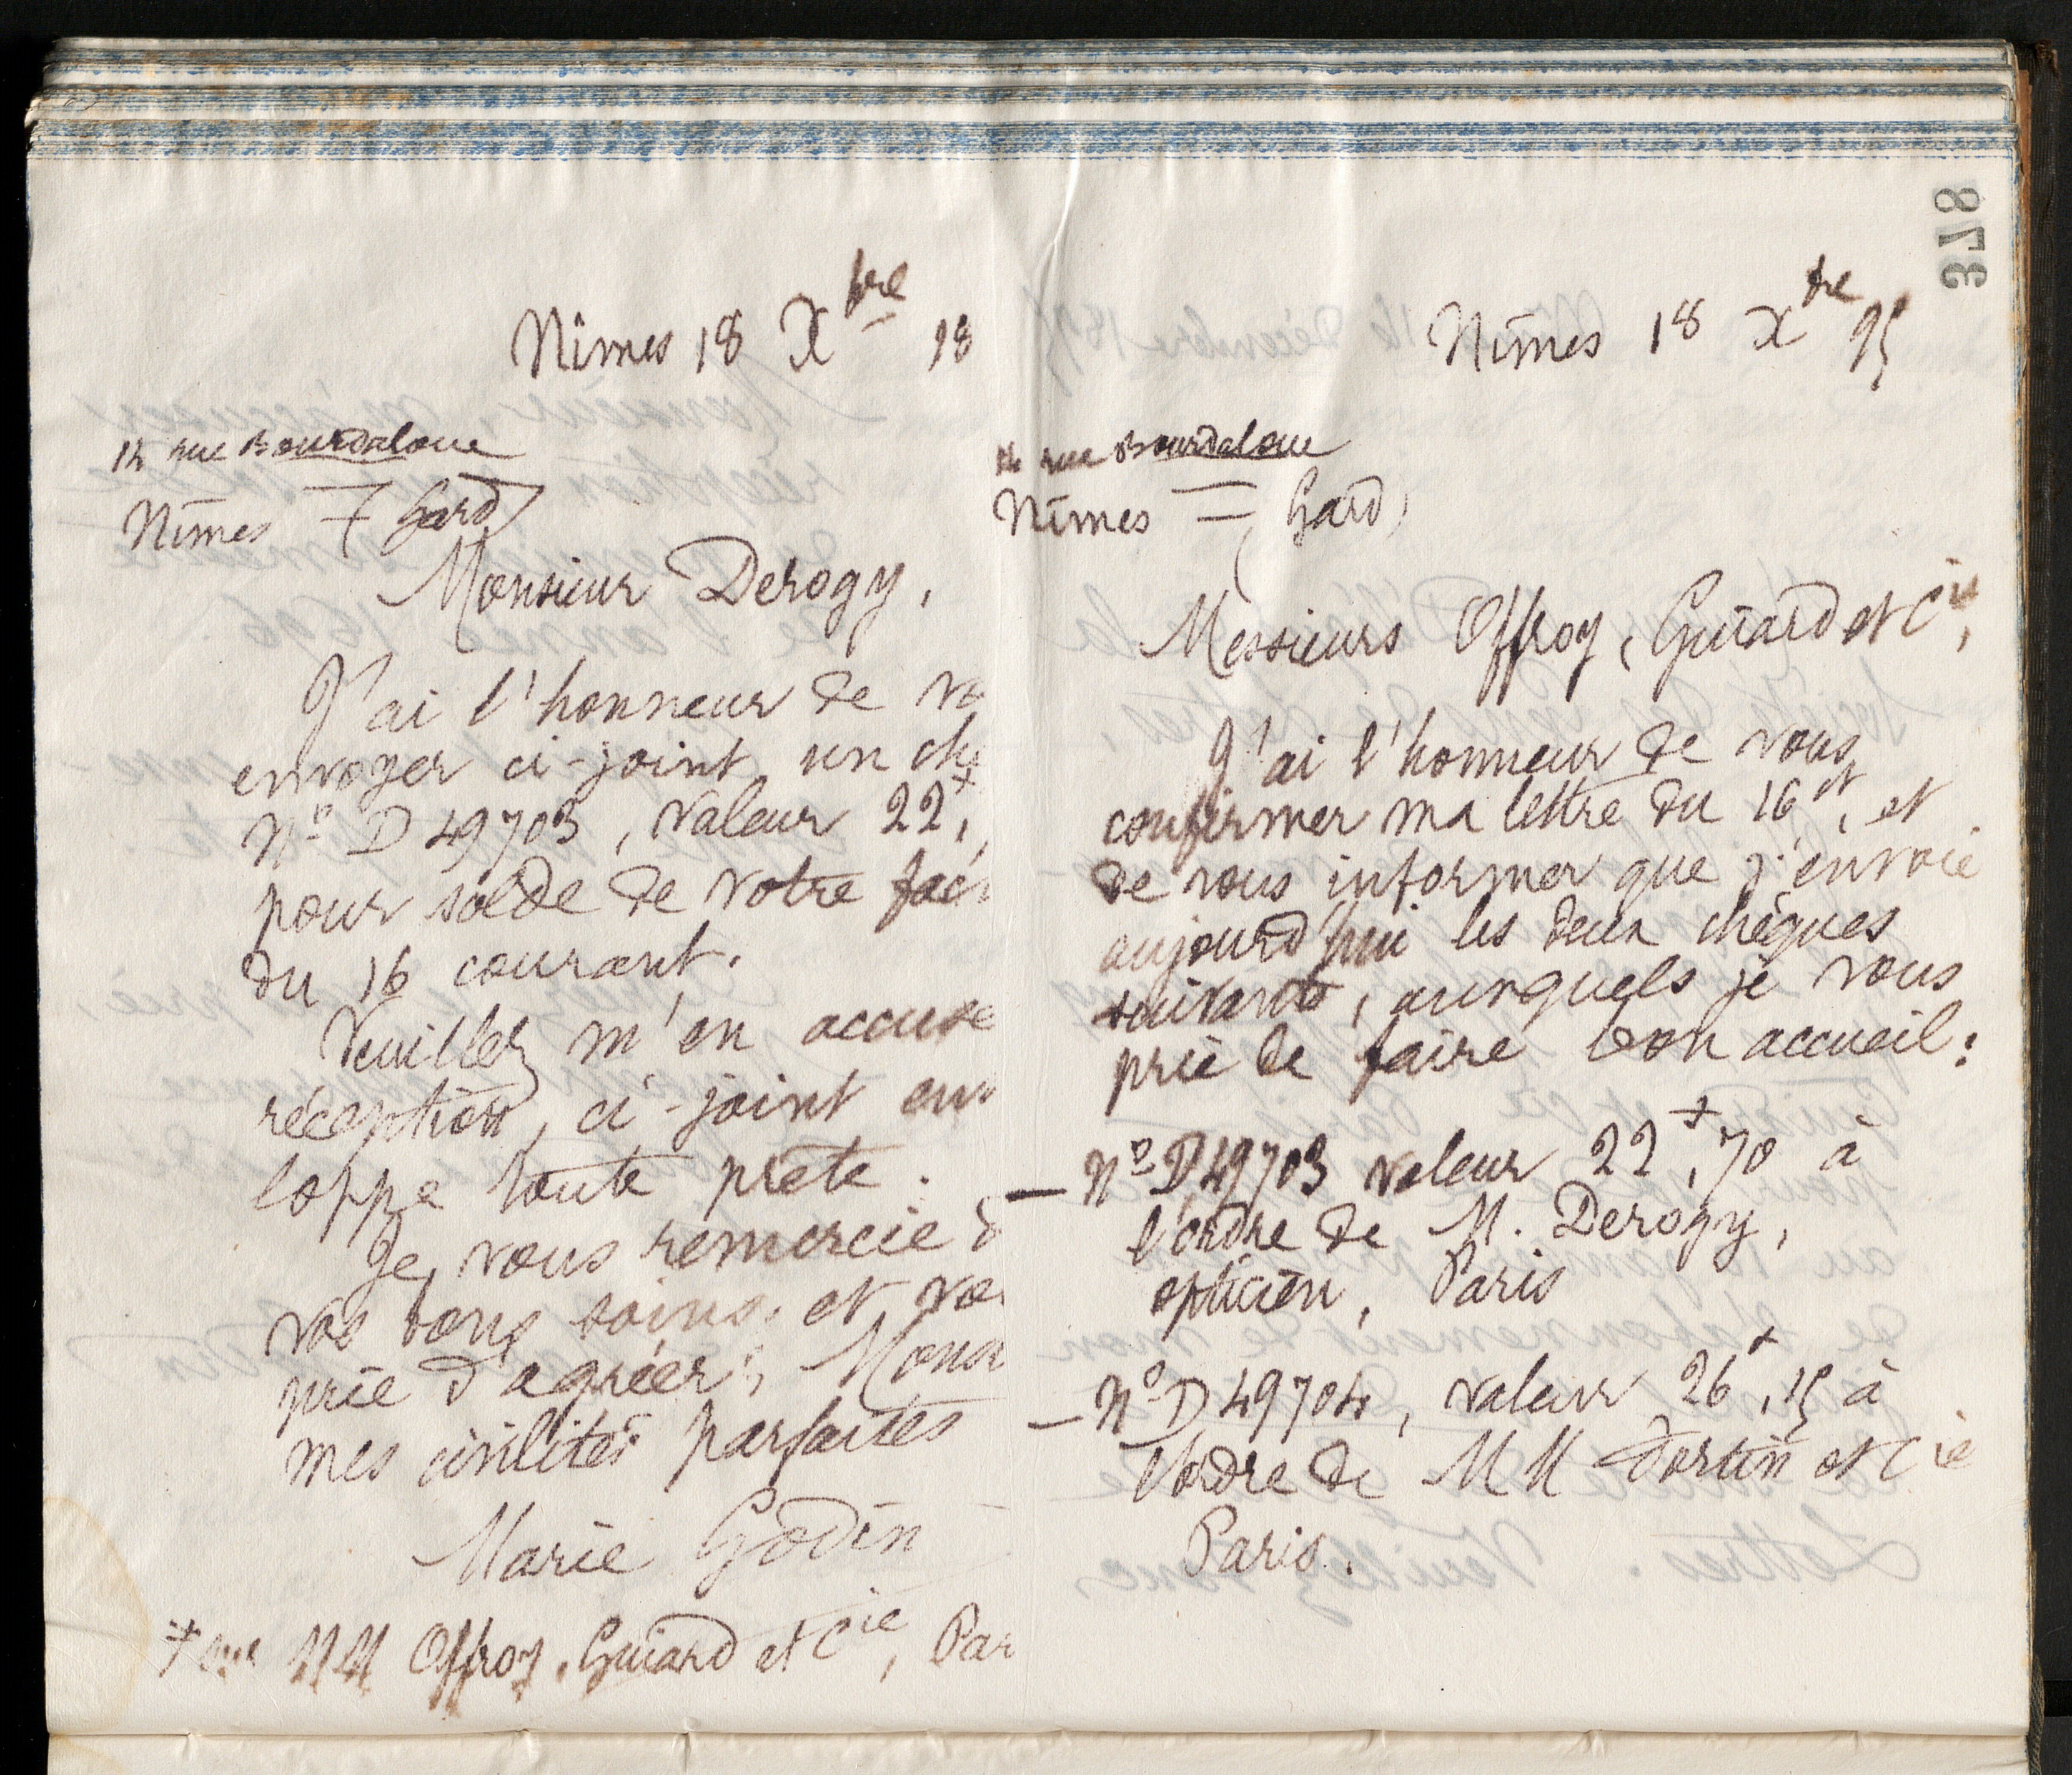 378
Nîmes 18 Xbre 18
14 rue Bourdaloue
Nîmes = (Gard)
Monsieur Derogy,
J'ai l'honneur de vo
envoyer ci-joint un chè
No D 49703, valeur 22f,
pour solde de votre fac
du 16 courant.
Veuillez m'en accuse
réception, ci-joint env
loppe toute prête.
Je vous remercie d
vos bons soins, et vou
prie d'agréer, Mons
mes civilités parfaites
Marie Godin
+ sur MM Offroy, Guiard et Cie, Par
Nîmes 18 Xbre 95
14 rue Bourdaloue
Nîmes = (Gard)
Messieurs Offroy, Guiard et Cie,
J'ai l'honneur de vous
confirmer ma lettre du 16 ct, et
de vous informer que j'envoie
aujourd'hui les deux chèques
suivants, auxquels je vous
prie de faire bon accueil:
— No D 49703 valeur 22f,70 à
l'ordre de M. Derogy,
opticien, Paris
— No D 49704, valeur 26f,15 à
l'ordre de MM Fortin et Cie
Paris.